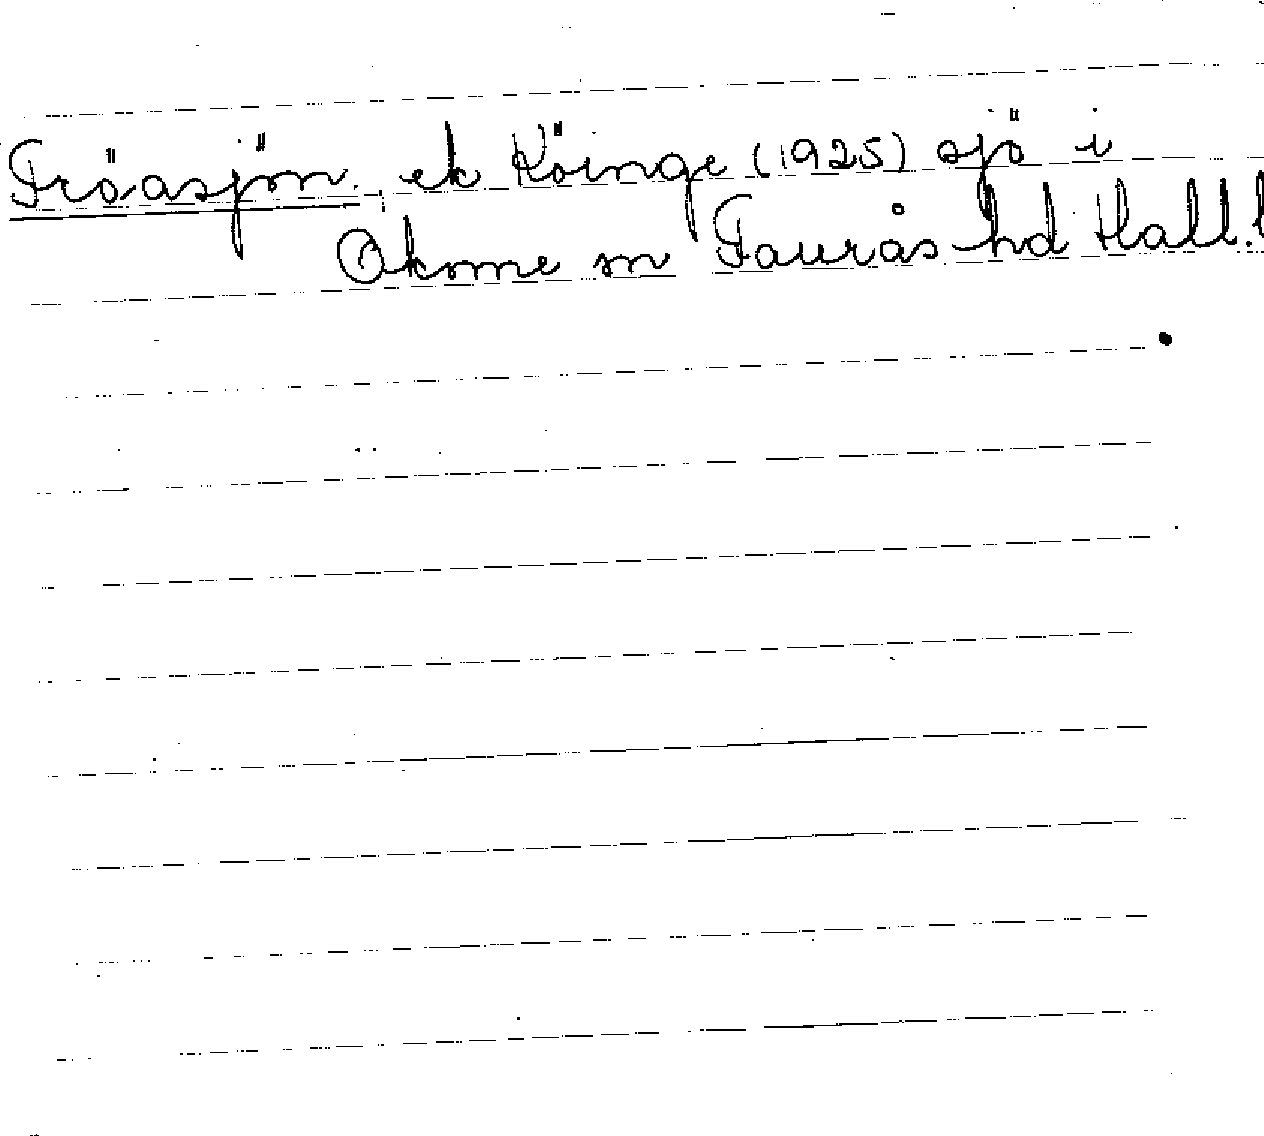 Fröasjön, ek Köinge (1925) sjö i
Okome sn Faurås hd Hall. l